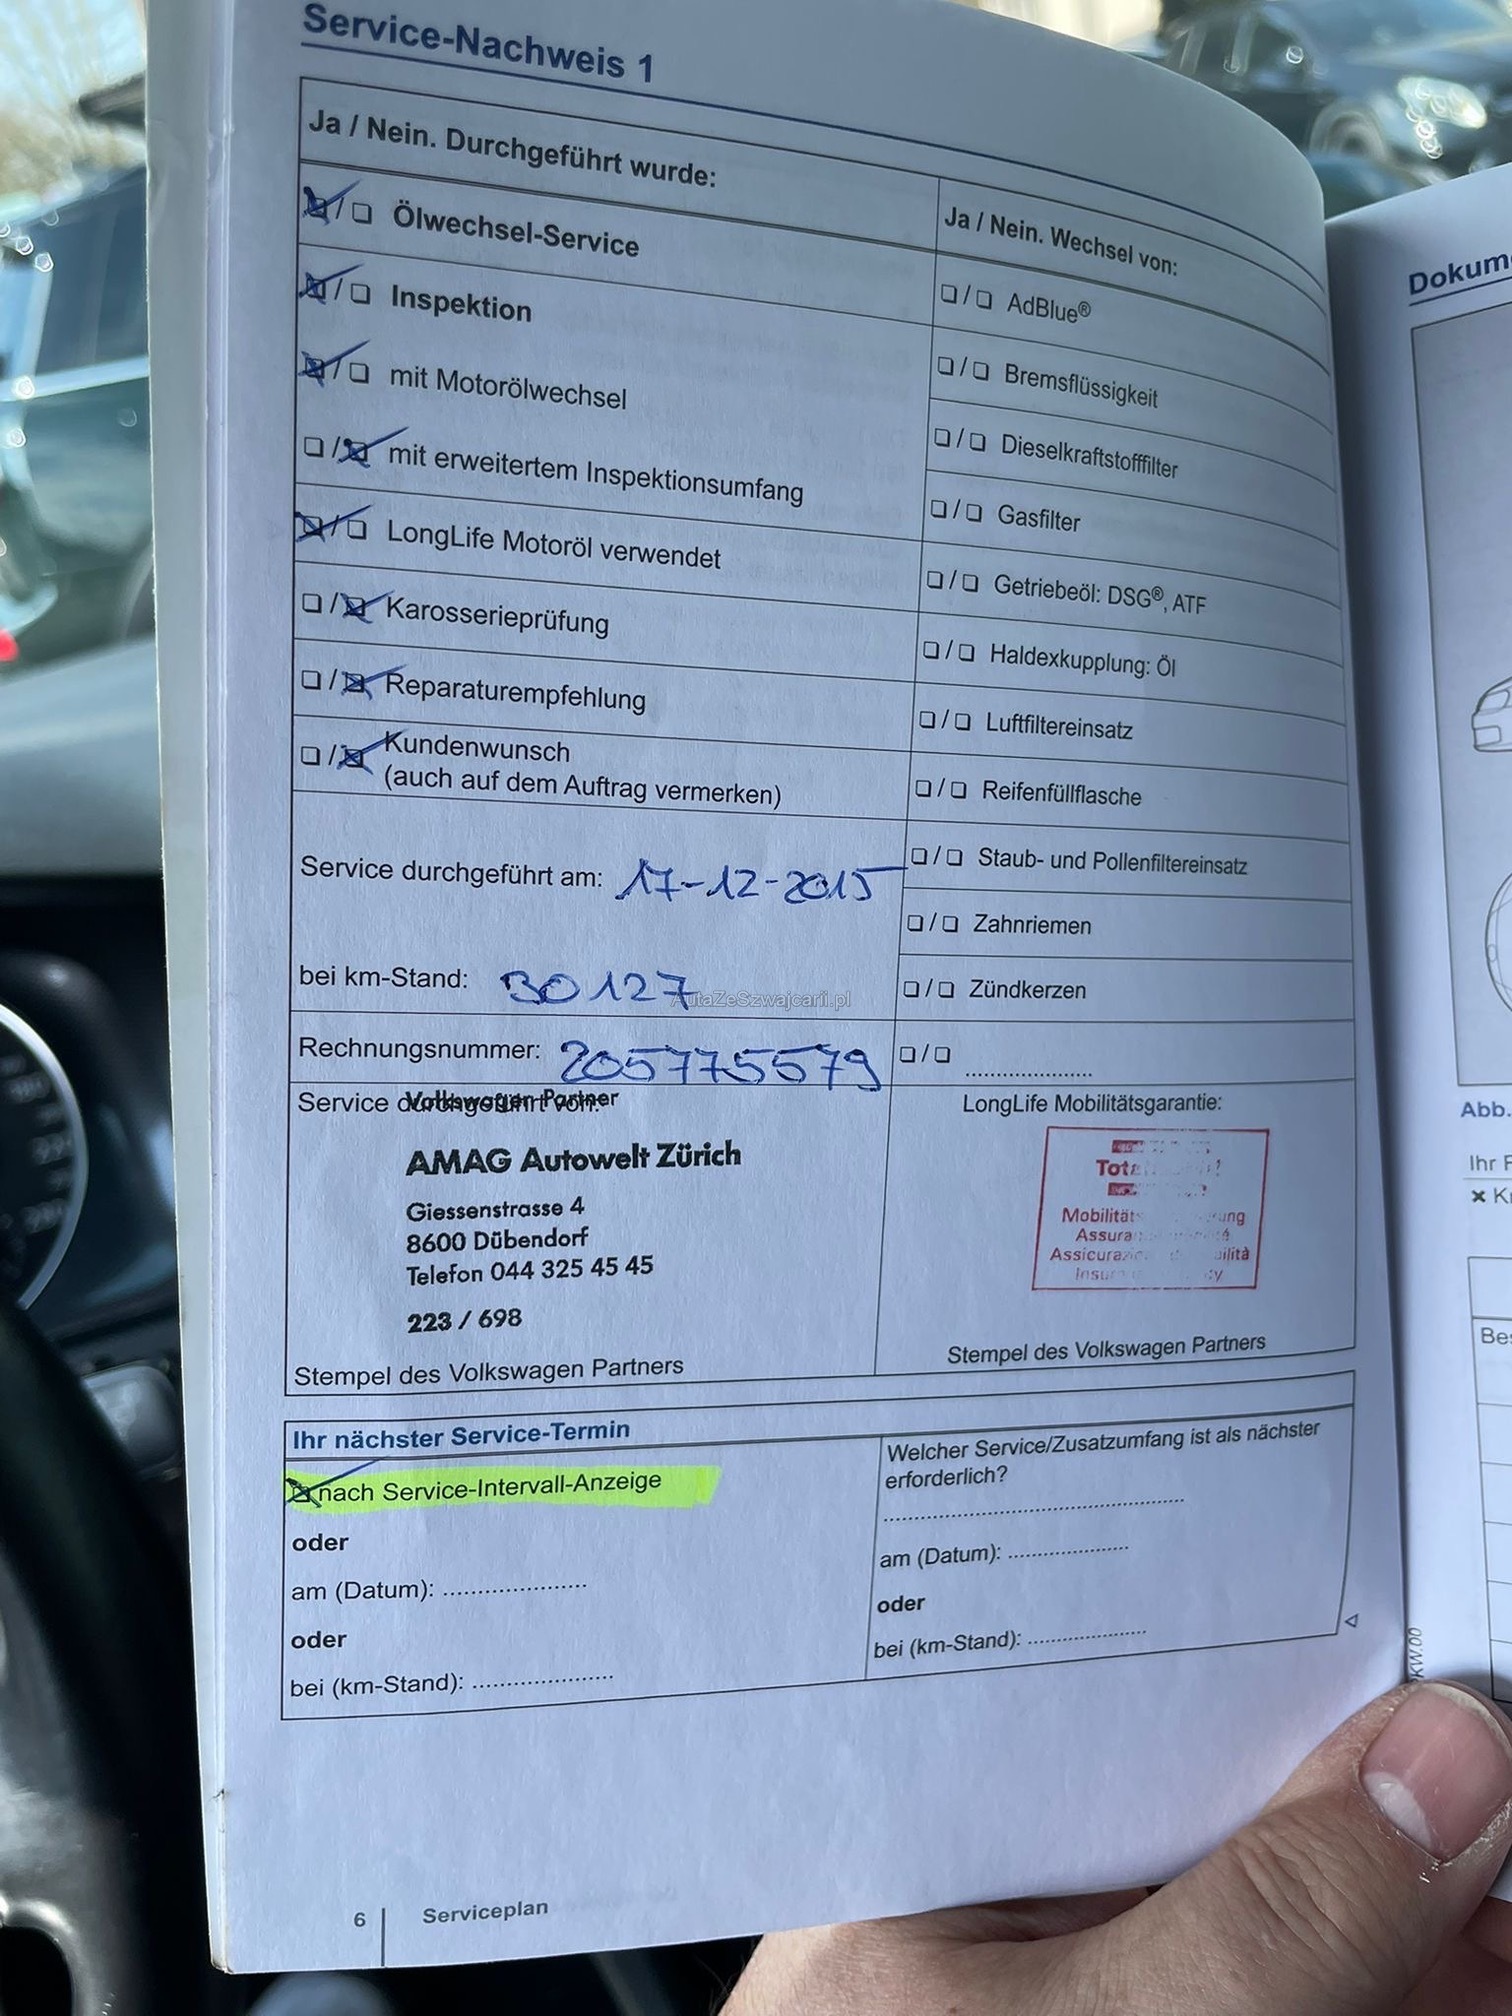 Service-Nachweis 1
Ja / Nein. Durchgeführt wurde:
❏ / ❏ Ölwechsel-Service
❏ / ❏ Inspektion
❏ / ❏ mit Motorölwechsel
❏ / ❏ mit erweitertem Inspektionsumfang
❏ / ❏ LongLife Motoröl verwendet
❏ / ❏ Karosserieprüfung
❏ / ❏ Reparaturempfehlung
❏ / ❏ Kundenwunsch
(auch auf dem Auftrag vermerken)
Service durchgeführt am: 17-12-2015
bei km-Stand: 30127
Rechnungsnummer: 205775579
Ja / Nein. Wechsel von:
❏ / ❏ AdBlue®
❏ / ❏ Bremsflüssigkeit
❏ / ❏ Dieselkraftstofffilter
❏ / ❏ Gasfilter
❏ / ❏ Getriebeöl: DSG®, ATF
❏ / ❏ Haldexkupplung: Öl
❏ / ❏ Luftfiltereinsatz
❏ / ❏ Reifenfüllflasche
❏ / ❏ Staub- und Pollenfiltereinsatz
❏ / ❏ Zahnriemen
❏ / ❏ Zündkerzen
❏ / ❏ ....................
AutaZeSzwajcarii.pl
Service durchgeführt von:
Volkswagen Partner
AMAG Autowelt Zürich
Giessenstrasse 4
8600 Dübendorf
Telefon 044 325 45 45
223 / 698
Stempel des Volkswagen Partners
LongLife Mobilitätsgarantie:
Stempel des Volkswagen Partners
Ihr nächster Service-Termin
❏ nach Service-Intervall-Anzeige
oder
am (Datum): .....................
oder
bei (km-Stand): .....................
Welcher Service/Zusatzumfang ist als nächster
erforderlich?
.............................................
am (Datum): ..................
oder
bei (km-Stand): ..................
6 Serviceplan
Abb.
KW.00